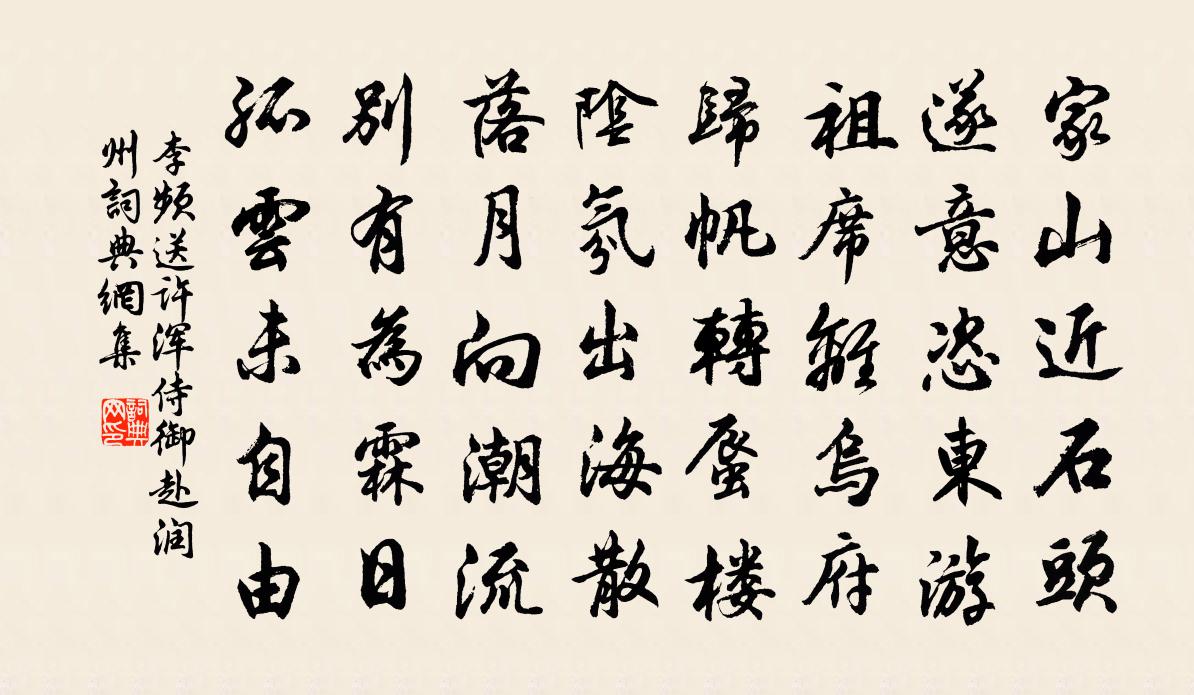 家山近石頭
遂意恣東游
祖席離烏府
歸帆轉蜃楼
陰氛出海散
落月向潮流
別有為霖日
孤雲未自由
李頻送許渾侍御赴润
州詞典網集
詞典
网印